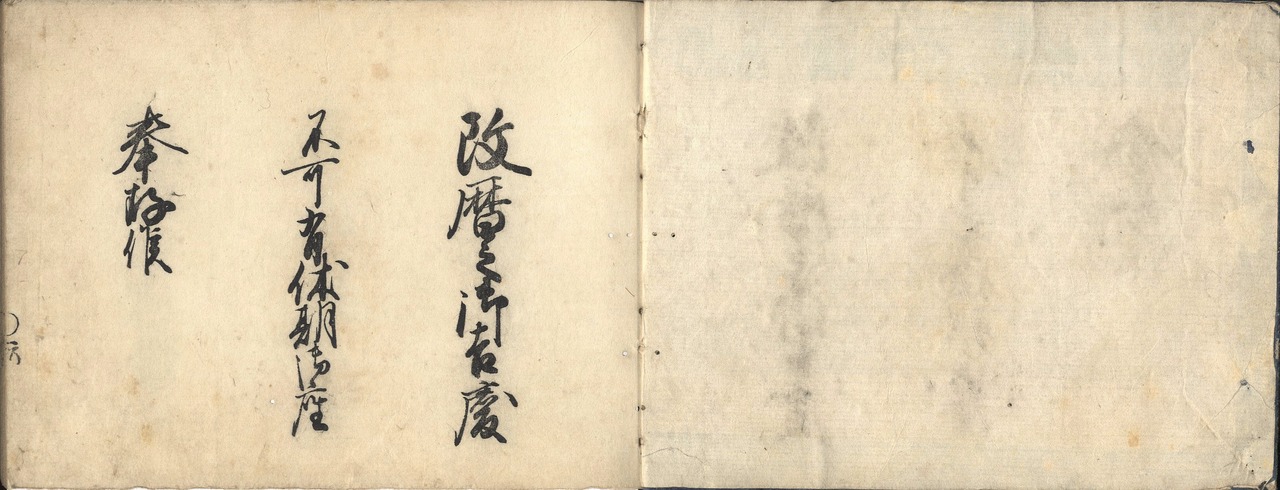 改暦之御吉慶
不可有休期御座
奉存候